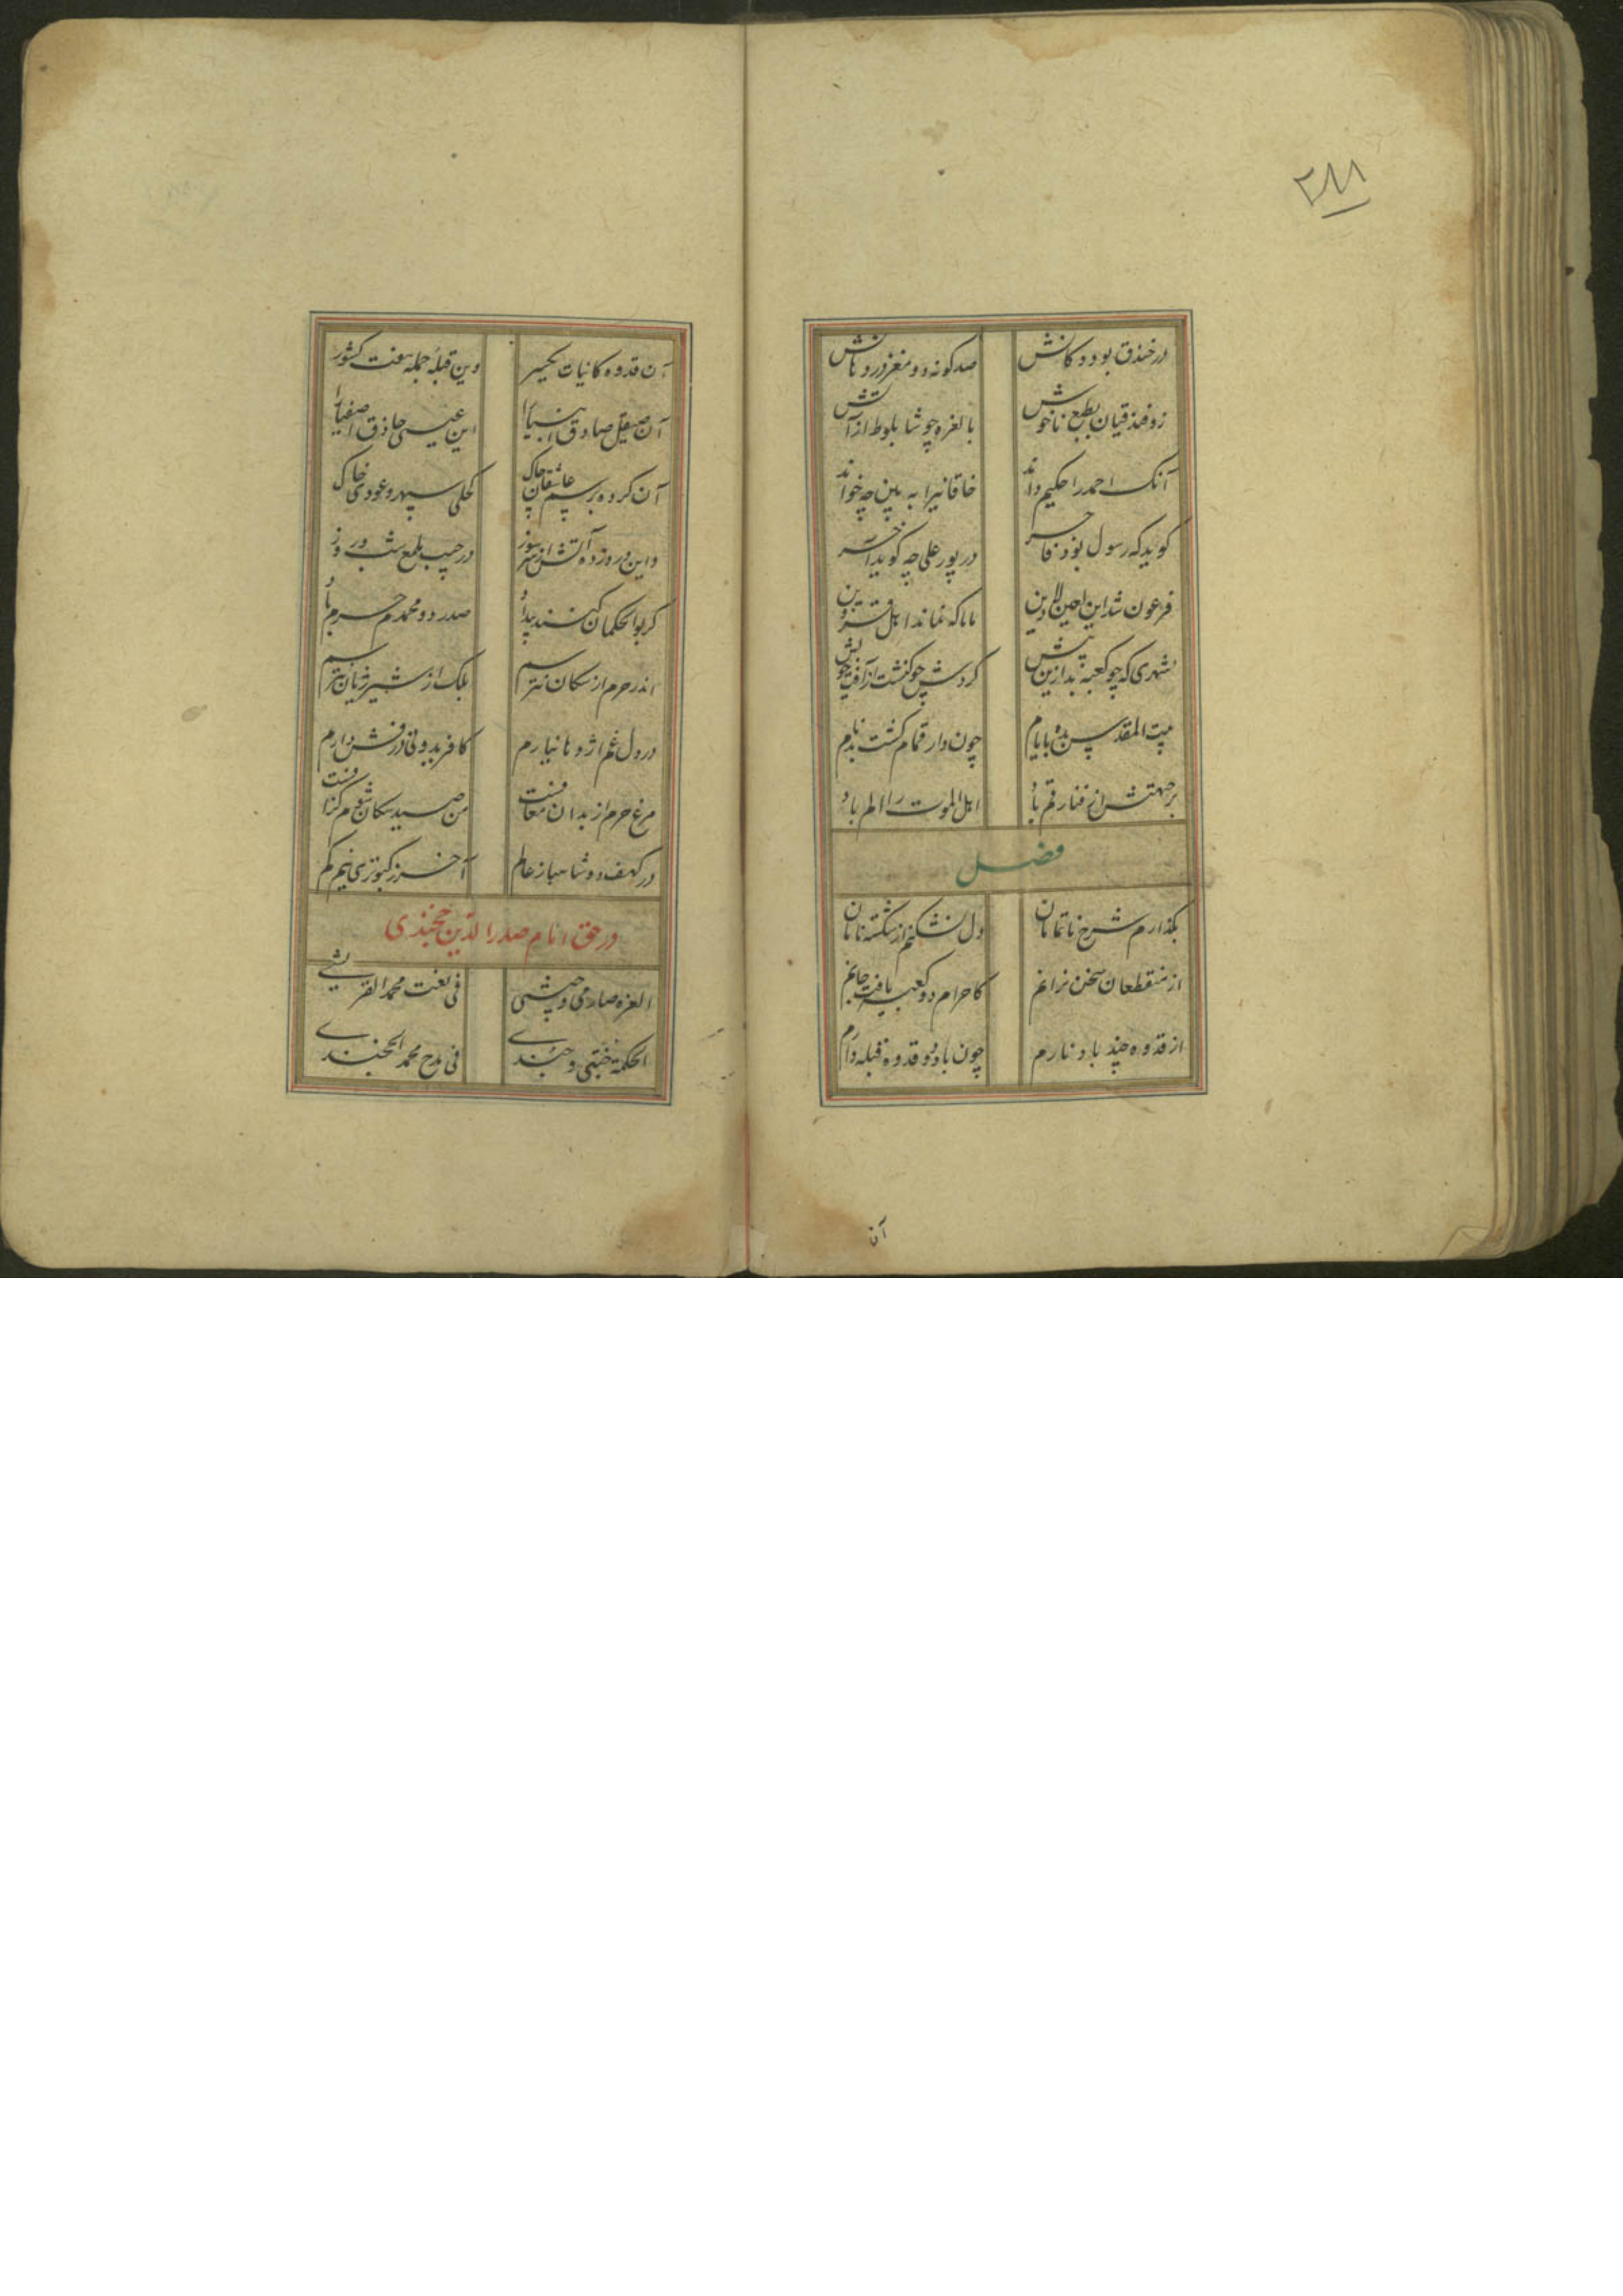 ۲۸۸
در خندق بود دوکانش صد کونه دو مغز در دکانش
زو فندقیان بطبع ناخوش بالغزه چو شا بلوط از آتش
آنک احمد را حکیم داند خاقانیرا به بین چه خواند
کوید که رسول بود فاخر در پور علی چه کوید آخر
فرعون شد این لعین لادین ماما که نماند اهل قزوین
شهری که چو کعبه بد ازین پیش کردش چو کنشت از آفت خویش
بیت المقدس بده بایام چون دار قمام کشت بدنام
بر جهتش از فنا رقم باد اهل الموت را الم باد
فصل
بکذارم شرح ناتمامان دل نشکنم از شکسته نامان
از منقطعان سخن نرانم کاحرام دو کعبه یافت جانم
از قدوه چند باد نارم چون یاد دو قدوه قبله دارم
آن
آن قدوه کانیات یکسر وین قبلهٔ جمله هفت کشور
آن صیقل صادق انبیا را این عیسی حاذق اصفیا را
آن کرده برسم عاشقان چاک کحلی سپهر و عودی خاک
واین در زده آتش از سر سوز در جیب ملمع شب و روز
کر بوالحکمان کنند بیداد صدر دو محمدم حرم باد
اندر حرم از سکان نترسم بلک از شیر ژیان نترسم
در دل غم اژدها نیارم کافریدونی درفش دارم
مرغ حرم از بدان معافست من صید سکان شوم کزافست
در کهف دو شاهباز عالم آخر ز کبوتری نیم کم
در حق امام صدر الدین خجندی
العزه صارمی و جیشی فی نعت محمد القریشی
الحکمة جنتی و جندی فی مدح محمد الخجندی